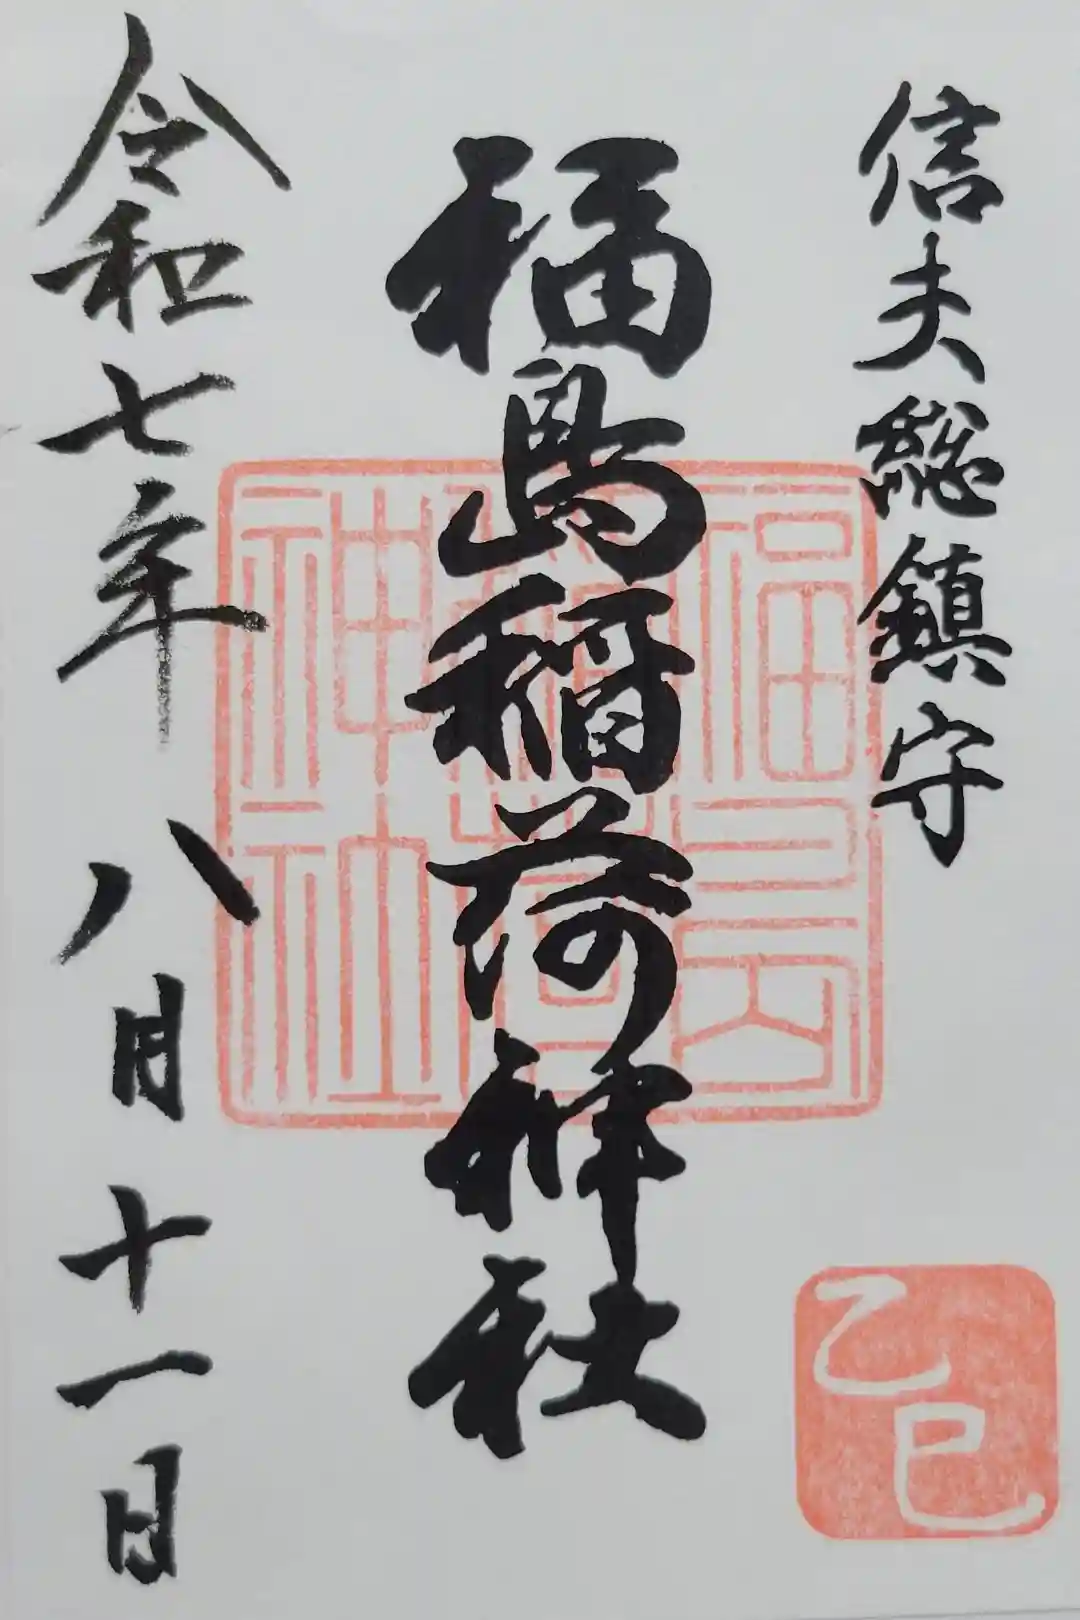 信夫総鎮守
福島稲荷神社
令和七年八月十一日
福島稲荷神社
乙巳